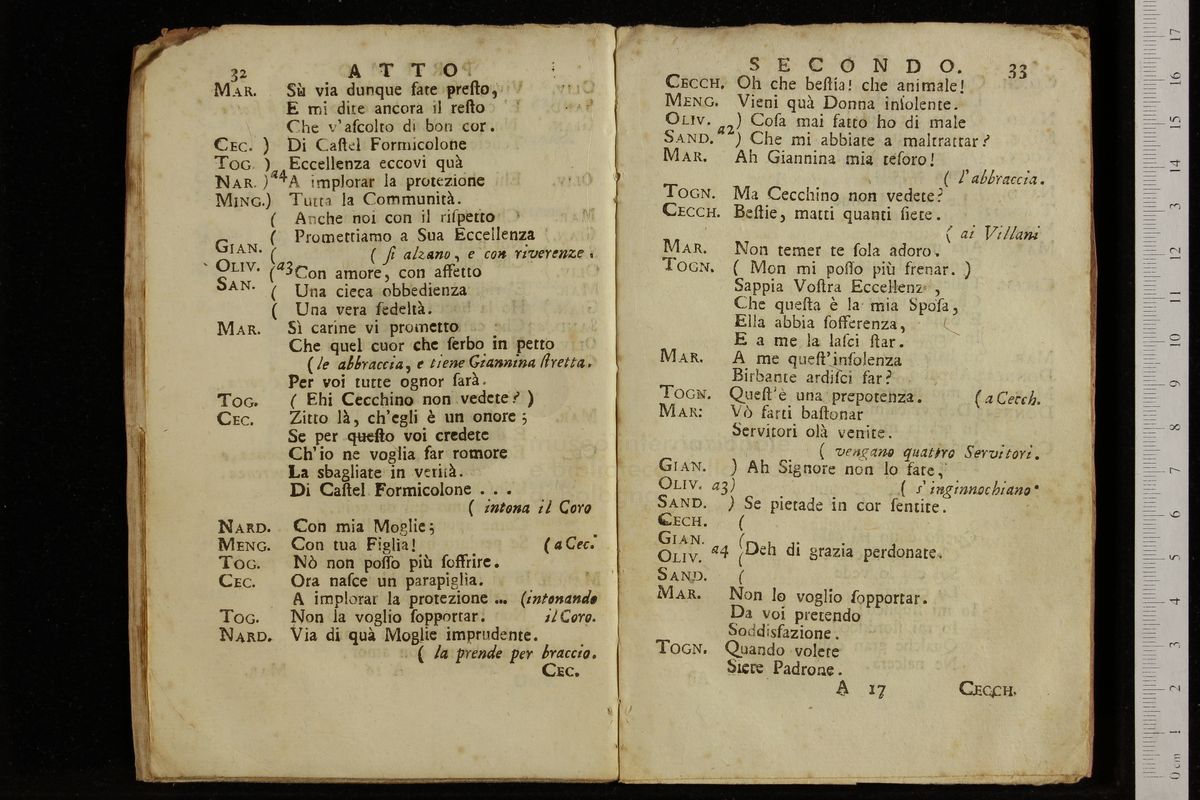 32 ATTO
MAR. Sù via dunque fate preſto,
E mi dite ancora il reſto
Che v'aſcolto di bon cor.
CEC. ) Di Caſtel Formicolone
TOG. ) Eccellenza eccovi quà
NAR. ) a4 A implorar la protezione
MING.) Tutta la Communità.
( Anche noi con il riſpetto
( Promettiamo a Sua Eccellenza
GIAN. ( ( ſi alzano, e con riverenze.
OLIV. (a3 Con amore, con affetto
SAN. ( Una cieca obbedienza
( Una vera fedeltà.
MAR. Sì carine vi prometto
Che quel cuor che ſerbo in petto
(le abbraccia, e tiene Giannina ſtretta.
Per voi tutte ognor ſarà.
TOG. ( Ehi Cecchino non vedete? )
CEC. Zitto là, ch'egli è un onore;
Se per queſto voi credete
Ch'io ne voglia far romore
La sbagliate in verità.
Di Caſtel Formicolone . . .
( intona il Coro
NARD. Con mia Moglie;
MENG. Con tua Figlia! (a Cec.
TOG. Nò non poſſo più ſoffrire.
CEC. Ora naſce un parapiglia.
A implorar la protezione ... (intonando
TOG. Non la voglio ſopportar. il Coro.
NARD. Via di quà Moglie imprudente.
( la prende per braccio.
CEC.
SECONDO. 33
CECCH. Oh che beſtia! che animale!
MENG. Vieni quà Donna inſolente.
OLIV. ) Coſa mai fatto ho di male
SAND. a2 ) Che mi abbiate a maltrattar?
MAR. Ah Giannina mia teſoro!
( l'abbraccia.
TOGN. Ma Cecchino non vedete?
CECCH. Beſtie, matti quanti ſiete.
( ai Villani
MAR. Non temer te ſola adoro.
TOGN. ( Mon mi poſſo più frenar. )
Sappia Voſtra Eccellenz ,
Che queſta è la mia Spoſa,
Ella abbia ſofferenza,
E a me la laſci ſtar.
MAR. A me queſt'inſolenza
Birbante ardiſci far?
TOGN. Queſt'è una prepotenza. (a Cecch.
MAR: Vò farti baſtonar
Servitori olà venite.
( vengano quattro Servitori.
GIAN. ) Ah Signore non lo fate,
OLIV. a3) ( s'inginnochiano
SAND. ) Se pietade in cor ſentite.
CECH. (
GIAN. (
OLIV. a4 (Deh di grazia perdonate.
SAND. (
MAR. Non lo voglio ſopportar.
Da voi pretendo
Soddisfazione.
TOGN. Quando volete
Siete Padrone.
A 17 CECCH.